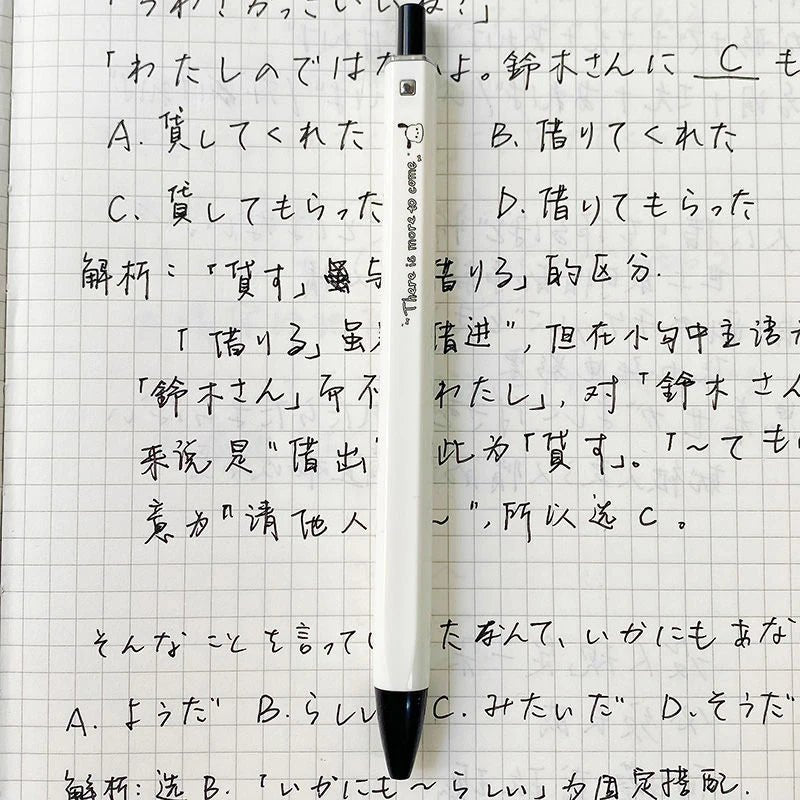 うわ！かっこいいね？」
「わたしのではないよ。鈴木さんに C も
A. 貸してくれた B. 借りてくれた
C. 貸してもらった D. 借りてもらった
解析：「貸す」与借りる」的区分.
「借りる」虽借进", 但在小句中主语为
「鈴木さん」而不わたし」, 对「鈴木さん
来说是"借出"此为「貸す」。「～ても
意为"请他人～", 所以选C。
そんなことを言ってたなんて、いかにもあな
A. ようだ B. らしい C. みたいだ D. そうだ
解析: 选B.「いかにも～らしい」为固定搭配.
~There is more to come~